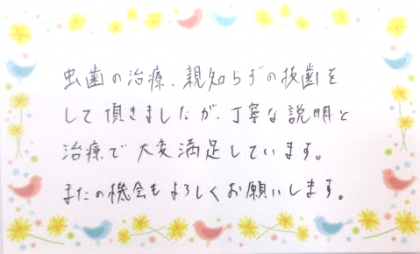 虫歯の治療、親知らずの抜歯を
して頂きましたが、丁寧な説明と
治療で大変満足しています。
またの機会もよろしくお願いします。